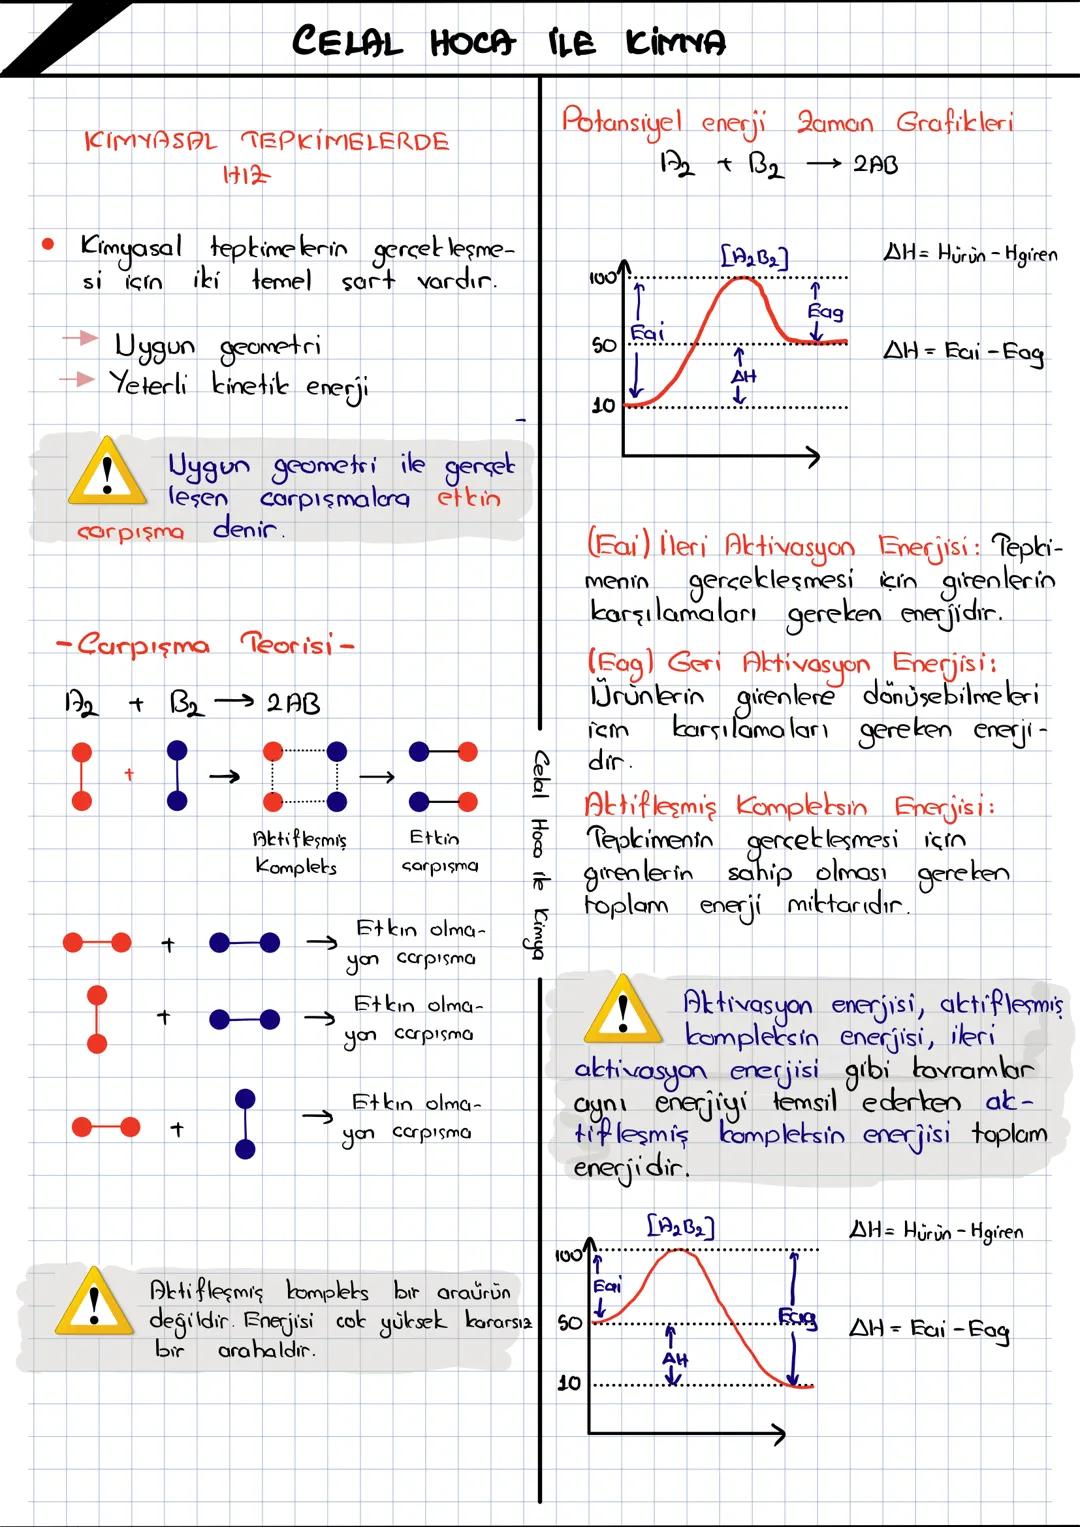 CELAL HOCA İLE KİMYA
KİMYASAL TEPKİMELERDE
HIZ
• Kimyasal tepkimelerin gerçekleşme-
si için iki temel şart vardır.
→ Uygun geometri
→ Yeterli kinetik enerji
Uygun geometri ile gerçek
leşen çarpışmalara etkin
çarpışma denir.
-Çarpışma Teorisi-
A₂ + B₂ → 2AB
+ → →
Aktifleşmiş
Kompleks
Etkin
çarpışma
+ → Etkin olma-
yan çarpışma
+ → Etkin olma-
yan çarpışma
+ → Etkin olma-
yan çarpışma
Aktifleşmiş kompleks bir araürün
değildir. Enerjisi çok yüksek kararsız
bir arahaldır.
Celal Hoca ile Kimya
Potansiyel enerji Zaman Grafikleri
A₂ + B₂ → 2AB
[A₂B₂]
100
50
10
Eai
Eag
ΔH
ΔH = Hürün - Hgiren
ΔH = Eai - Eag
(Eai) İleri Aktivasyon Enerjisi: Tepki-
menin gerçekleşmesi için girenlerin
karşılamaları gereken enerjidir.
(Eag) Geri Aktivasyon Enerjisi:
Ürünlerin girenlere dönüşebilmeleri
için karşılamaları gereken enerji-
dir.
Aktifleşmiş Kompleksin Enerjisi:
Tepkimenin gerçekleşmesi için
girenlerin sahip olması gereken
toplam enerji miktarıdır.
Aktivasyon enerjisi, aktifleşmiş
kompleksin enerjisi, ileri
aktivasyon enerjisi gibi kavramlar
aynı enerjiyi temsil ederken ak-
tifleşmiş kompleksin enerjisi toplam
enerjidir.
[A₂B₂]
100
50
10
Eai
Eag
ΔH
ΔH = Hürün - Hgiren
ΔH = Eai - Eag